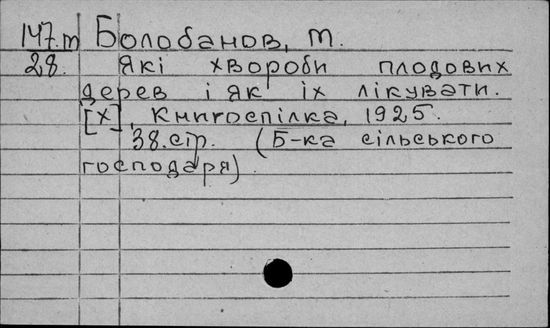 147.т Болобанов, т.
28. Які хвороби плодових
дерев і як їх лікувати.
[х], Книгоспілка, 1925.
38.стр. (Б-ка сільського
господаря).